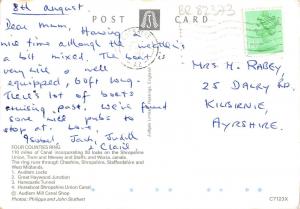 8th August.
POST CARD
BR 82373
Dear Mum, Having a
nice time although the weather's
a bit mixed. The boat is
very well
equipped, 60ft long.
There's lot of boats
cruising past. We've found
some nice pubs to
stop at. Love,
Isobel, Jack, Judith
& Clair
MRS H. RABEY,
25 DALRY RD,
KILBIRNIE,
AYRSHIRE.
FOUR COUNTIES RING
110 miles of Canal incorporating 92 locks on the Shropshire
Union, Trent and Mersey and Staffs. and Worcs. Canals.
The ring runs through Cheshire, Shropshire, Staffordshire and
West Midlands.
1. Audlem Locks
2. Great Haywood Junction
3. Harecastle Tunnel
4. Horseboat Shropshire Canal
5. Audlem Mill Canal Shop
Photos: Philippa and John Stothert
C7123X